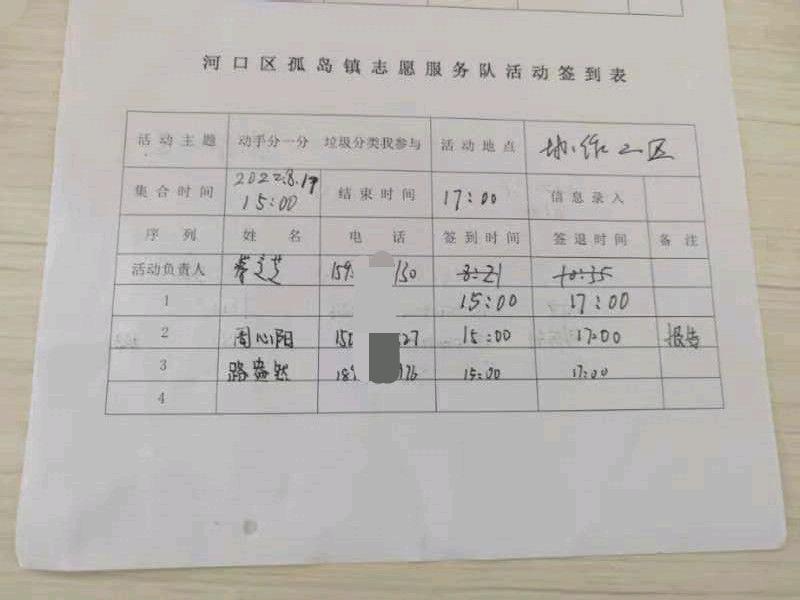 河口区孤岛镇志愿服务队活动签到表
活动主题 动手分一分 垃圾分类我参与 活动地点 协作二区
集合时间 2022.8.19 15:00 结束时间 17:00 信息录入
序列 姓名 电话 签到时间 签退时间 备注
活动负责人 159 130 8:21 10:35
1 15:00 17:00
2 周心阳 27 15:00 17:00 报告
3 路 然 15:00 17:00
4